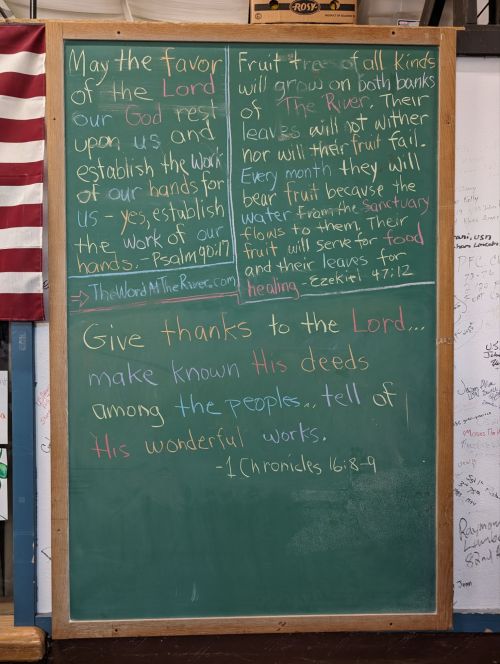 ROSY
May the favor
of the Lord
our God rest
upon us and
establish the work
of our hands for
us - yes, establish
the work of our
hands. - Psalm 90:17
→ TheWordAtTheRiver.com
Fruit trees of all kinds
will grow on both banks
of The River. Their
leaves will not wither
nor will their fruit fail.
Every month they will
bear fruit because the
water from the sanctuary
flows to them. Their
fruit will serve for food
and their leaves for
healing - Ezekiel 47:12
Give thanks to the Lord...
make known His deeds
among the peoples... tell of
His wonderful works.
- 1 Chronicles 16:8-9
Kelly
PFC
Raymond
82nd